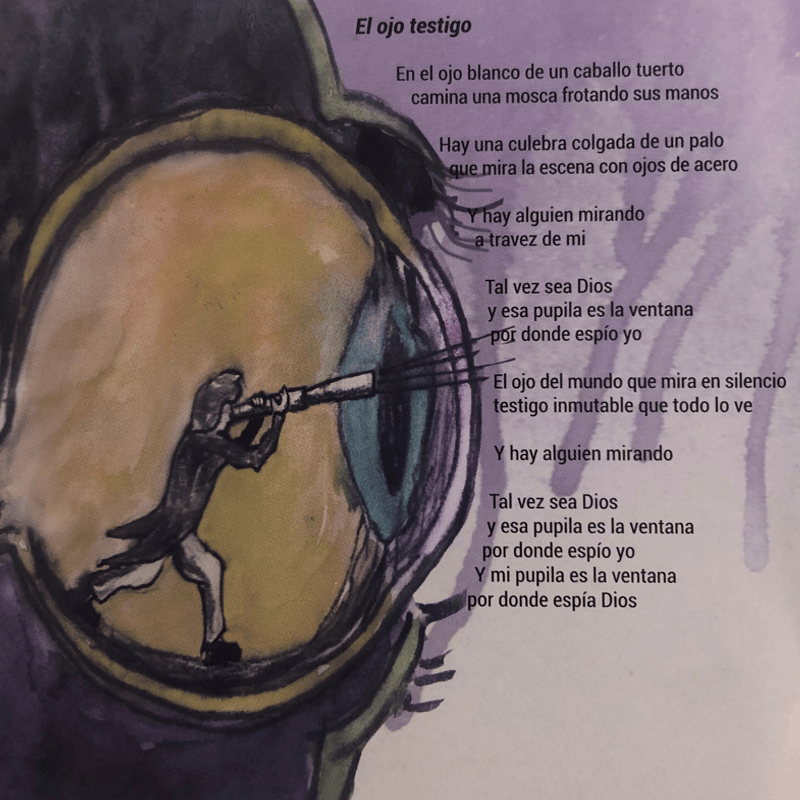 El ojo testigo
En el ojo blanco de un caballo tuerto
camina una mosca frotando sus manos
Hay una culebra colgada de un palo
que mira la escena con ojos de acero
Y hay alguien mirando
a travez de mi
Tal vez sea Dios
y esa pupila es la ventana
por donde espío yo
El ojo del mundo que mira en silencio
testigo inmutable que todo lo ve
Y hay alguien mirando
Tal vez sea Dios
y esa pupila es la ventana
por donde espío yo
Y mi pupila es la ventana
por donde espía Dios